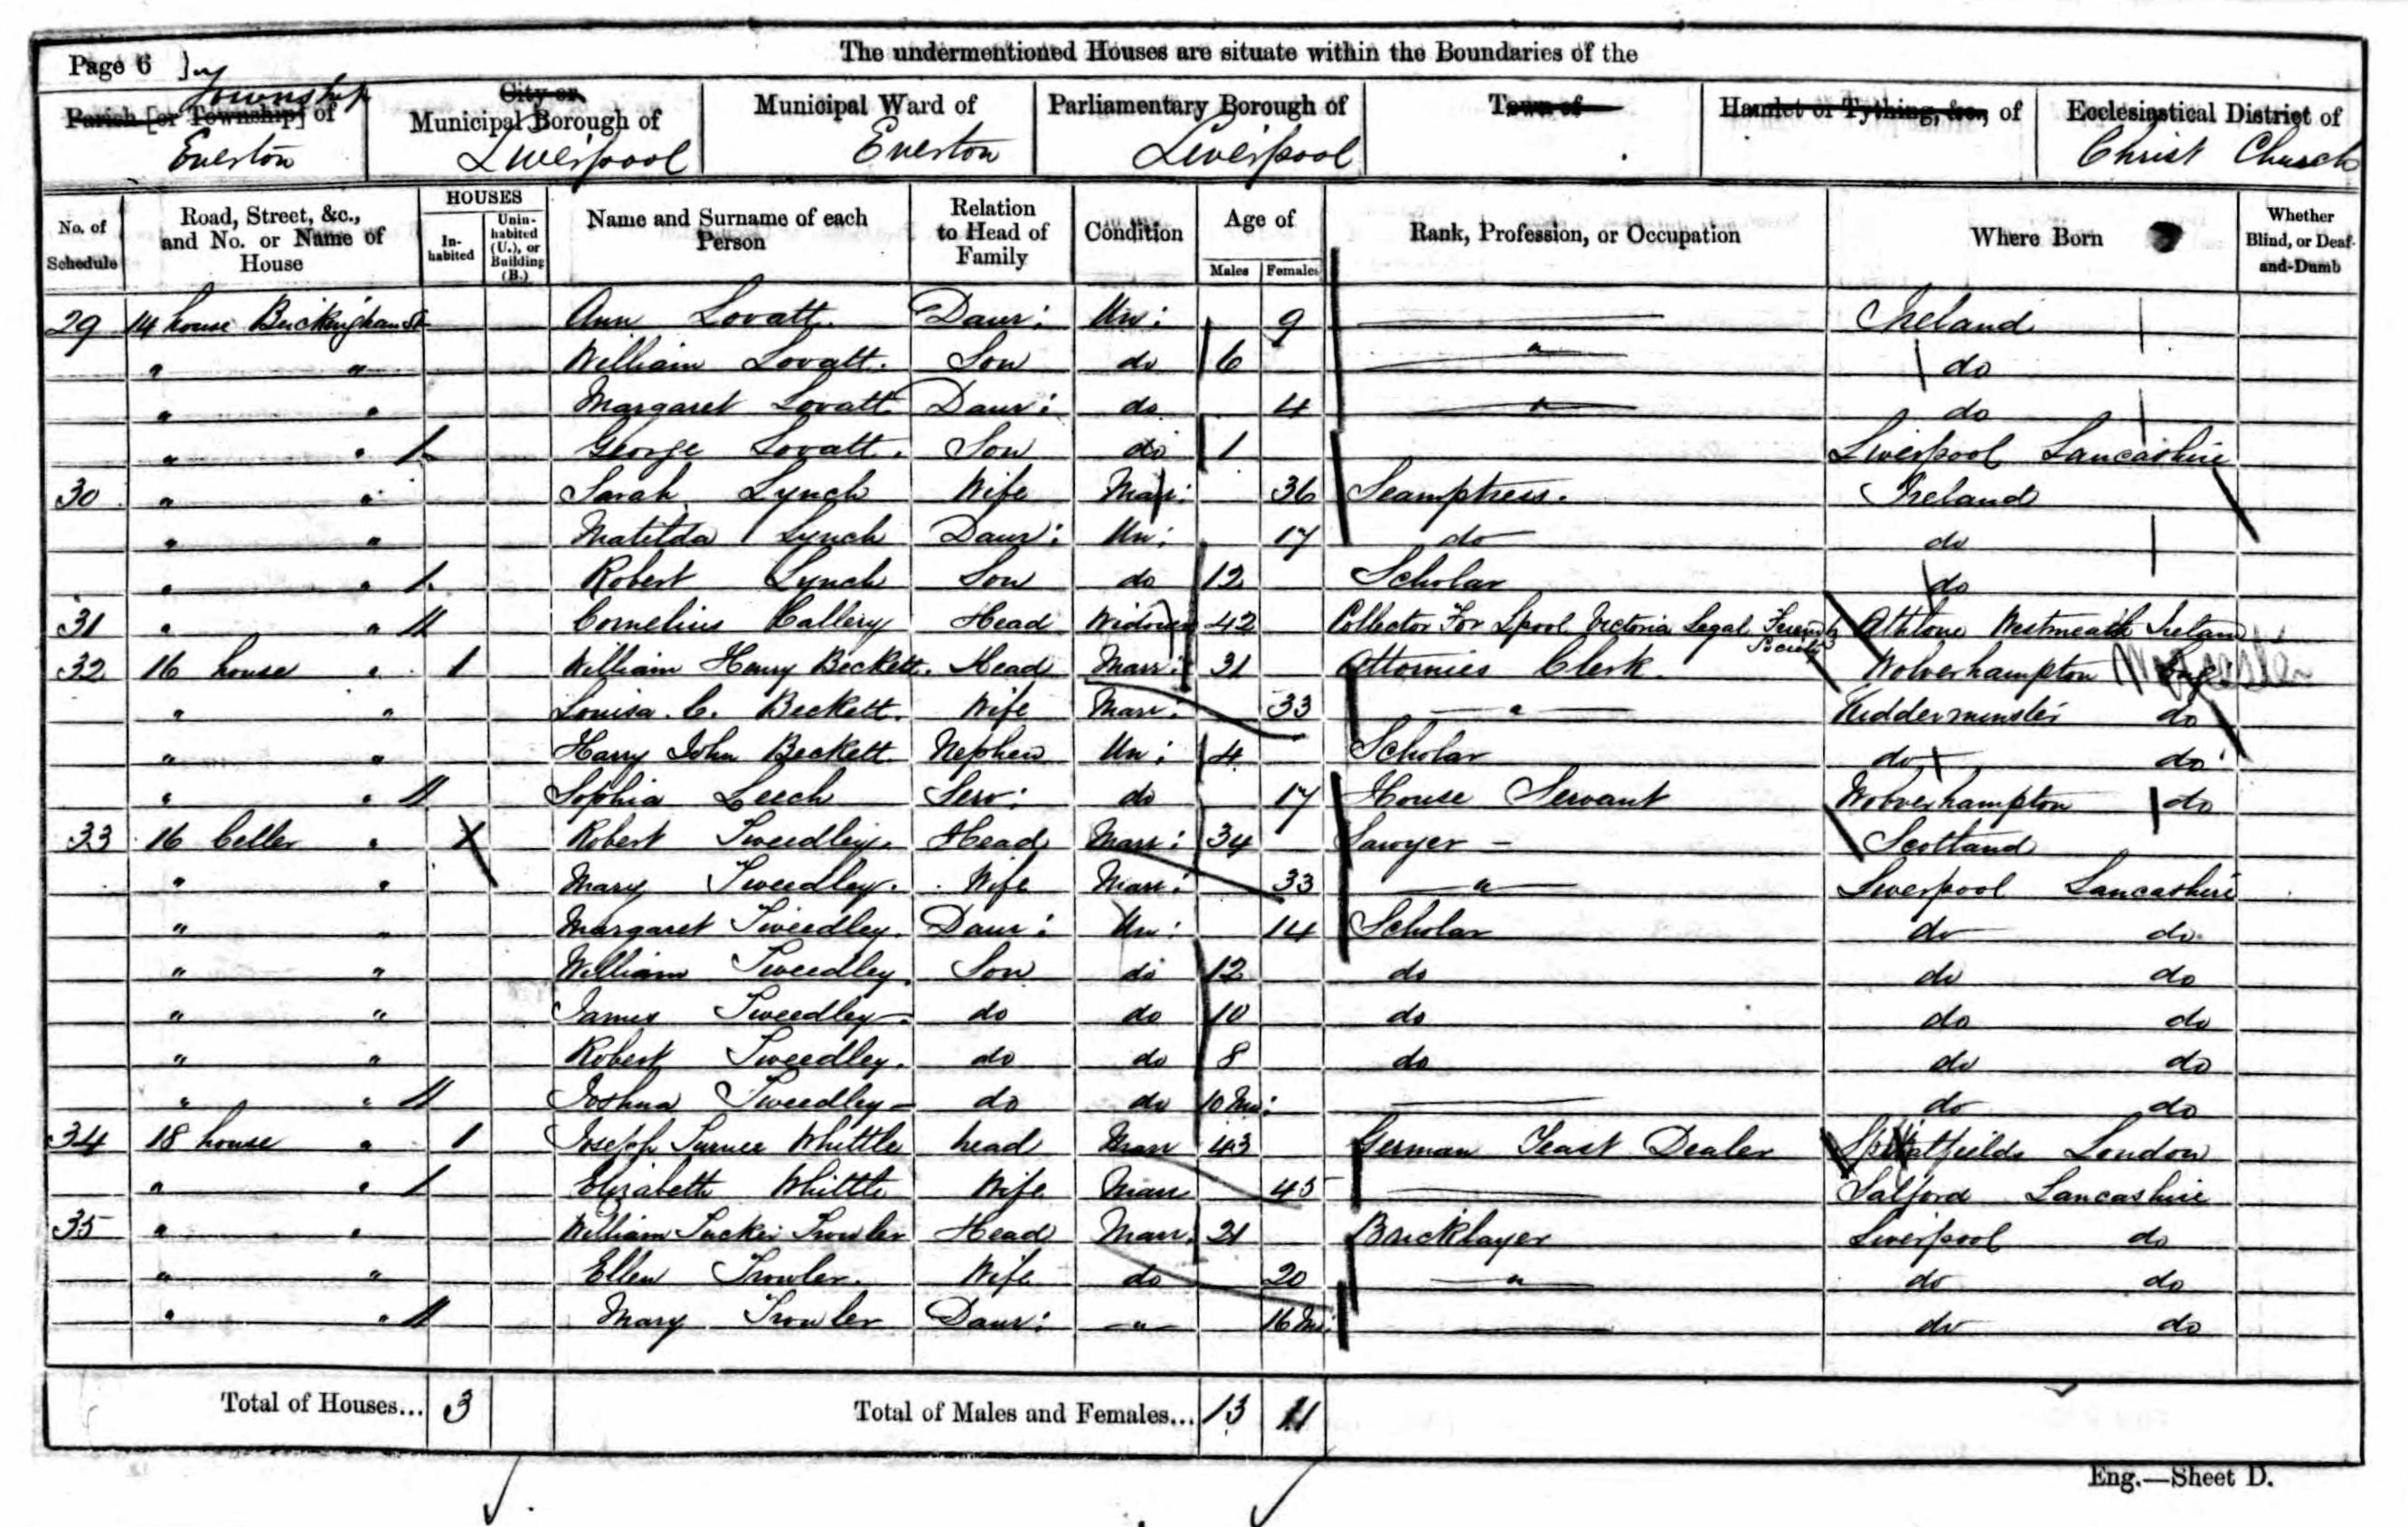 Page 6
The undermentioned Houses are situate within the Boundaries of the
Township
Parish [or Township] of
Everton
City or
Municipal Borough of
Liverpool
Municipal Ward of
Everton
Parliamentary Borough of
Liverpool
Town of
Hamlet or Tything, &c., of
Ecclesiastical District of
Christ Church
No. of Schedule
Road, Street, &c., and No. or Name of House
HOUSES
In-habited
Unin-habited (U.), or Building (B.)
Name and Surname of each Person
Relation to Head of Family
Condition
Age of
Males
Females
Rank, Profession, or Occupation
Where Born
Whether Blind, or Deaf-and-Dumb
29 14 house Buckingham St Ann Lovatt. Daur: Un: 9 Ireland
" " William Lovatt. Son do 6 " do
" " Margaret Lovatt Daur: do 4 " do
" " George Lovatt. Son do 1 Liverpool Lancashire
30 " " Sarah Lynch Wife Mar: 36 Seamptress. Ireland
" " Matilda Lynch Daur: Un: 17 do do
" " Robert Lynch Son do 12 Scholar do
31 " " Cornelius Callery Head Widower 42 Collector For Lpool Victoria Legal Friendly Society Athlone Westmeath Ireland
32 16 house " 1 William Henry Beckett. Head Marr: 31 Attornies Clerk. Wolverhampton
" " Louisa. C. Beckett. Wife Marr: 33 " Kidderminster do
" " Harry John Beckett Nephew Un: 4 Scholar do do
" " Sophia Leech Serv: do 17 House Servant Wolverhampton do
33 16 Celler " 1 Robert Tweedley. Head Marr: 34 Sawyer - Scotland
" " Mary Tweedley. Wife Marr: 33 " Liverpool Lancashire
" " Margaret Tweedley. Daur: Un: 14 Scholar do do
" " William Tweedley. Son do 12 do do do
" " James Tweedley do do 10 do do do
" " Robert Tweedley. do do 8 do do do
" " Joshua Tweedley do do 10 Mo: do do
34 18 house " 1 Joseph Turner Whittle head Marr 43 German Yeast Dealer Spitalfields London
" " Elizabeth Whittle Wife Marr 45 Salford Lancashire
35 " " William Tucker Trowler Head Marr: 21 Bricklayer Liverpool do
" " Ellen Trowler. Wife do 20 " do do
" " Mary Trowler Daur: " 16 Mo: do do
Total of Houses... 3
Total of Males and Females... 13 11
Eng.—Sheet D.